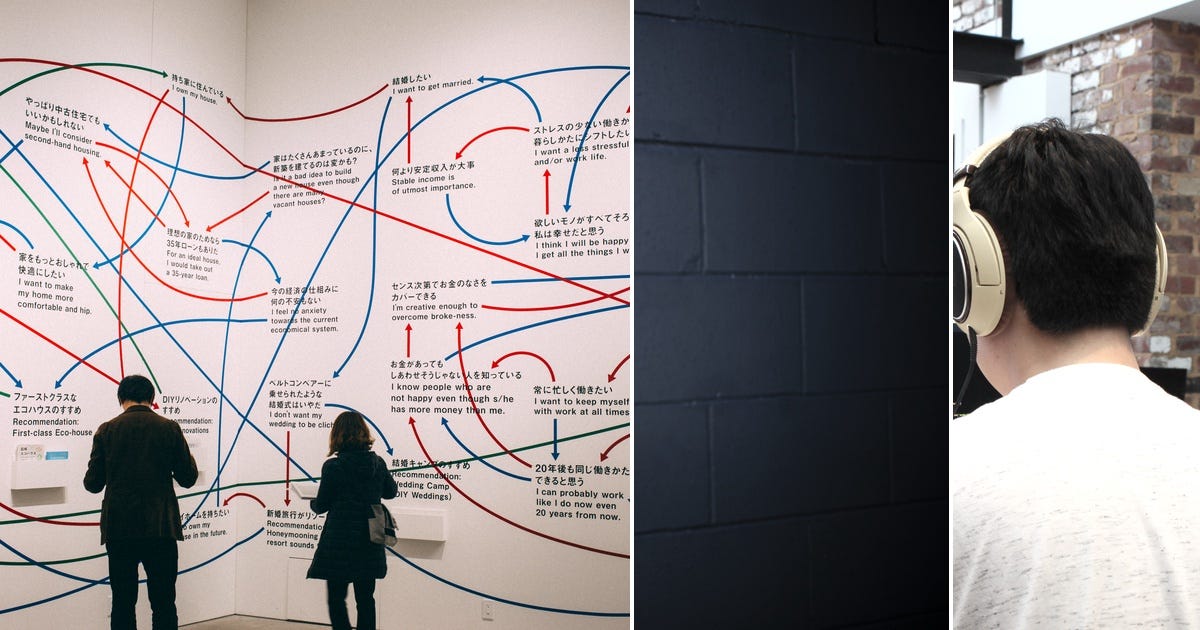 持ち家に住んでいる
I own my house.
やっぱり中古住宅でも
いいかもしれない
Maybe I'll consider
second-hand housing.
家はたくさんあまっているのに、
新築を建てるのは変かも?
Is it a bad idea to build
a new house even though
there are many
vacant houses?
理想の家のためなら
35年ローンもありだ
For an ideal house,
I would take out
a 35-year loan.
家をもっとおしゃれで
快適にしたい
I want to make
my home more
comfortable and hip.
今の経済の仕組みに
何の不安もない
I feel no anxiety
towards the current
economical system.
ファーストクラスな
エコハウスのすすめ
Recommendation:
First-class Eco-house
DIYリノベーションの
すすめ
ベルトコンベアーに
乗せられたような
結婚式はいやだ
I don't want my
wedding to be
新婚旅行がリゾー
Recommendation
Honeymooning
resort sounds
結婚したい
I want to get married.
何より安定収入が大事
Stable income is
of utmost importance.
ストレスの少ない働きか
暮らしかたにシフトしたい
I want a less stressful
and/or work life.
欲しいモノがすべてそろ
私は幸せだと思う
I think I will be happy
I get all the things I w
センス次第でお金のなさを
カバーできる
I'm creative enough to
overcome broke-ness.
お金があっても
しあわせそうじゃない人を知っている
I know people who are
not happy even though s/he
has more money than me.
常に忙しく働きたい
I want to keep myself
with work at all times
結婚キャンプのすすめ
Recommendation:
Wedding Camp
(DIY Weddings)
20年後も同じ働きかた
できると思う
I can probably work
like I do now even
20 years from now.